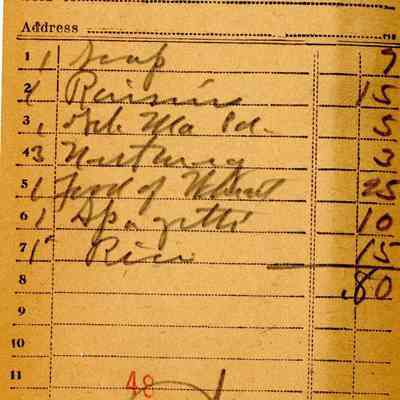 Address
1 1 Soap 7
2 1 Raisins 15
3 1 5
4 3 Nutmeg 3
5 1 Food of Wheat 25
6 1 Spagetti 10
7 1 Rice 15
8 .80
9
10
11
48